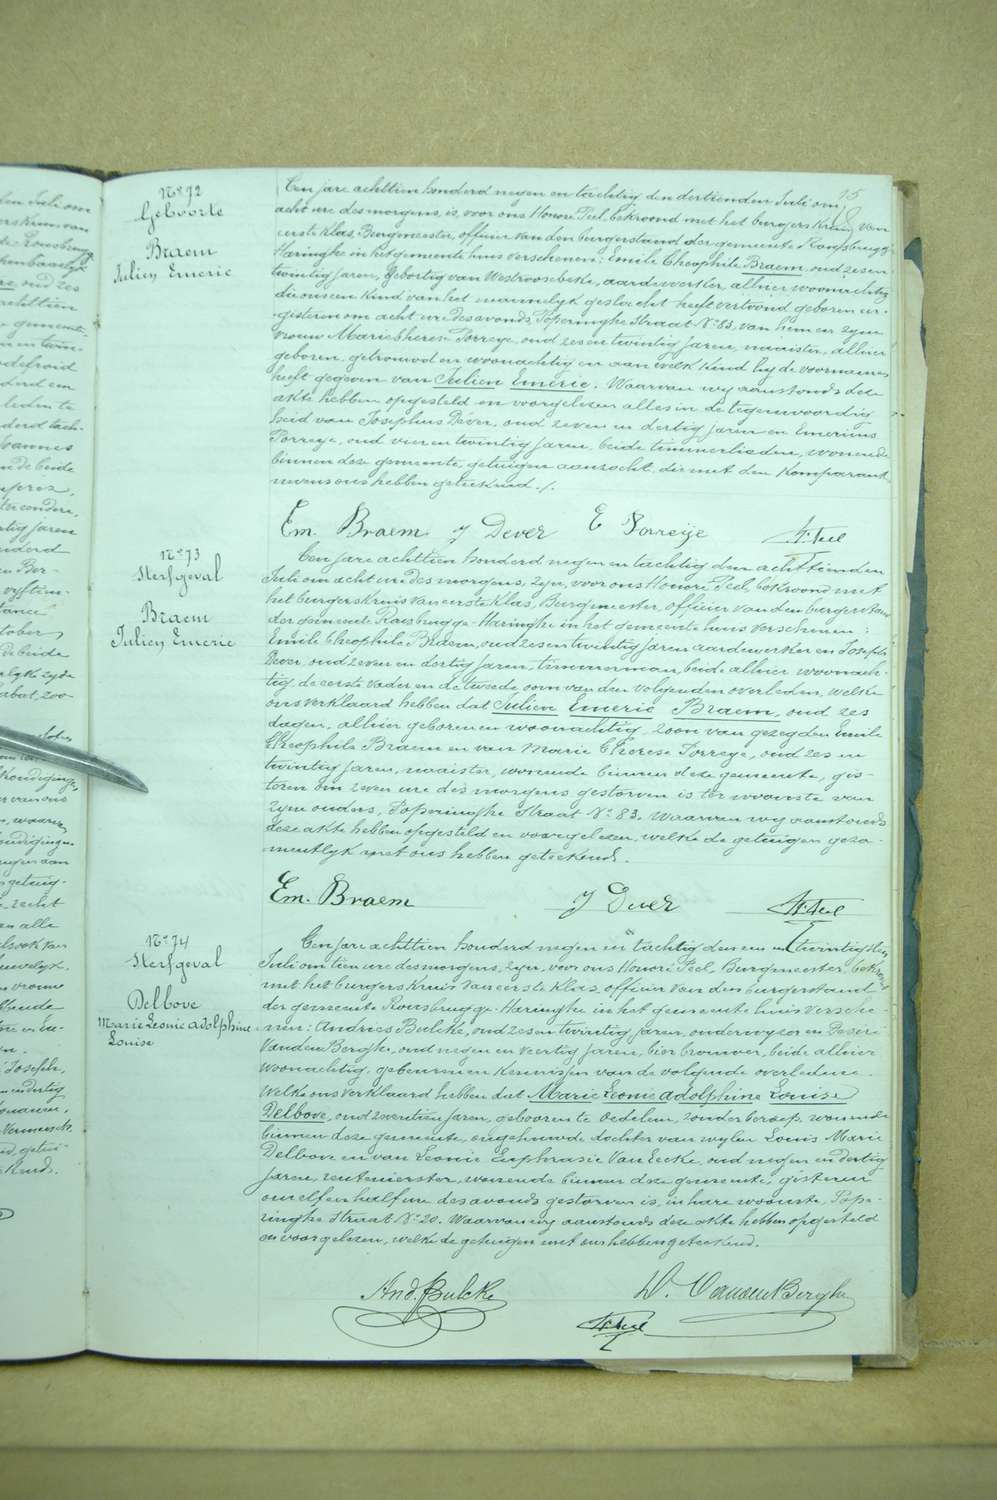 25
Nº 72
Geboorte
Braem
Julien Emeric
Een jare achttien honderd negen en tachtig den dertienden Juli om
acht ure des morgens, is, voor ons Honoré Peel, bekroond met het burgerskruis van
eerste klas, Burgmeester, officier van den burgerstand der gemeente Rousbrugge
Haringhe in het gemeente huis verschenen: Emile Theophile Braem, oud zes en
twintig jaren, geboortig van Westroosebeke, aardewerker, alhier woonachtig
die ons een kind van het mannelijk geslacht heeft vertoond geboren eer-
gisteren om acht ure des avonds, Poperinghe Straat Nº 83, van hem en zyne
vrouw Marie Therese Porreye, oud zes en twintig jaren, naaister, alhier
geboren, getrouwd en woonachtig en aan welk kind hy de voornamen
heeft gegeven van Julien Emeric. Waarvan wy aanstonds deze
akte hebben opgesteld en voorgelezen alles in de tegenwoordig
heid van Josephus Dever, oud zeven en dertig jaren en Emerius
Porreye, oud vier en twintig jaren, beide timmerlieden, wonende
binnen deze gemeente, getuigen aanzocht, die met den komparant
nevens ons hebben geteekend ./.
Em. Braem J Dever E Porreije H. Peel
Nº 73
Sterfgeval
Braem
Julien Emeric
Een jare achttien honderd negen en tachtig den achttienden
Juli om acht ure des morgens, zyn, voor ons Honoré Peel, bekroond met
het burgerskruis van eerste klas, Burgmeester, officier van den burgerstand
der gemeente Rousbrugge-Haringhe in het gemeente huis verschenen:
Emile Theophile Braem, oud zes en twintig jaren aardewerker en Joseph
Dever, oud zeven en dertig jaren, timmerman, beide alhier woonach-
tig, de eerste vader en de tweede oom van den volgenden overleden, welke
ons verklaard hebben dat Julien Emeric Braem, oud zes
dagen, alhier geboren en woonachtig, zoon van gezegden Emile
Theophile Braem en van Marie Therese Porreye, oud zes en
twintig jaren, naaister, wonende binnen deze gemeente, gis-
teren om zeven ure des morgens gestorven is ter woonste van
zyne ouders, Poperinghe Straat Nº 83. Waarvan wy aanstonds
deze akte hebben opgesteld en voorgelezen, welke de getuigen geza-
mentlyk met ons hebben geteekend.
Em. Braem J Dever H. Peel
Nº 74
Sterfgeval
Delbove
Marie Leonie Adolphine
Louise
Een jare achttien honderd negen en tachtig den een en twintigsten
Juli om tien ure des morgens, zyn, voor ons Honoré Peel, Burgmeester, bekroond
met het burgers kruis van eerste klas, officier van den burgerstand
der gemeente Rousbrugge-Haringhe in het gemeente huis versche-
nen: Andries Bulcke, oud zes en twintig jaren, onderwyzer en
Vanden Berghe, oud negen en veertig jaren, bierbrouwer, beide alhier
woonachtig, gebueren en kennissen van de volgende overledene.
Welke ons verklaard hebben dat Marie Leonie Adolphine Louise
Delbove, oud zeventien jaren, geboren te Oedelem, zonder beroep, wonende
binnen deze gemeente, ongehuwde dochter van wylen Louis Marie
Delbove en van Leonie Euphrasie Van Eecke, oud negen en dertig
jaren, rentenierster, wonende binnen deze gemeente, gisteren
om elf en half ure des avonds gestorven is, in hare woonste, Pope-
ringhe Straat Nº 20. Waarvan wy aanstonds deze akte hebben opgesteld
en voorgelezen, welke de getuigen met ons hebben geteekend.
And. Bulcke D. Vanden Berghe
H. Peel